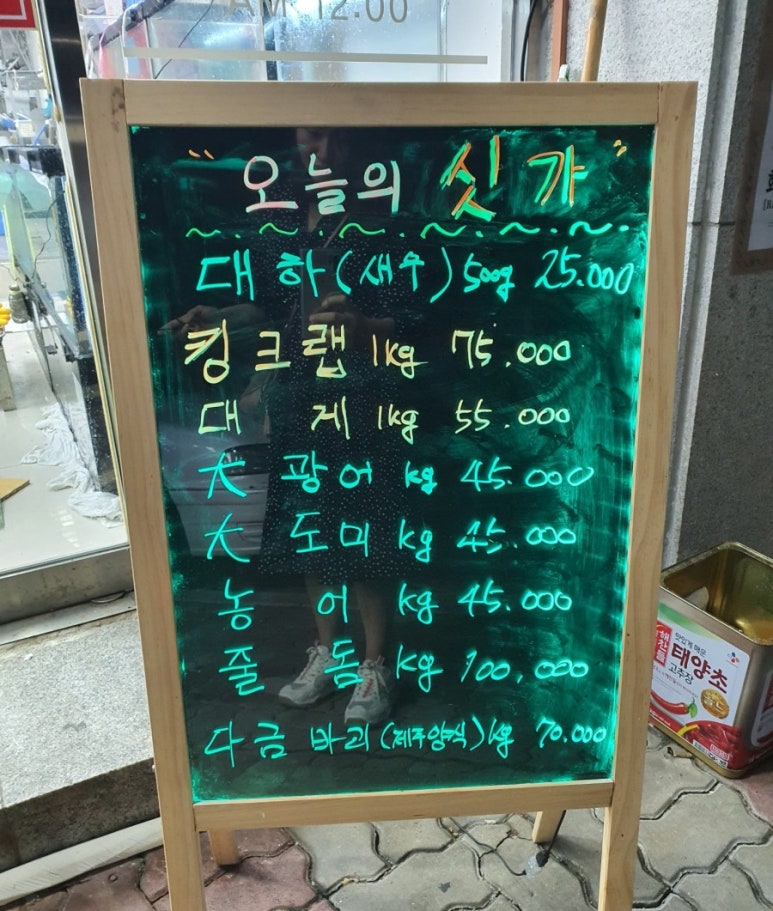 AM 12.00
" 오늘의 싯가 "
대하(새우) 500g 25.000
킹크랩 1kg 75.000
대 게 1kg 55.000
大 광어 kg 45.000
大 도미 kg 45.000
농 어 kg 45.000
줄 돔 kg 100,000
다금바리(제주양식)kg 70.000
해찬들
맛있게 매운
태양초
고추장
CJ